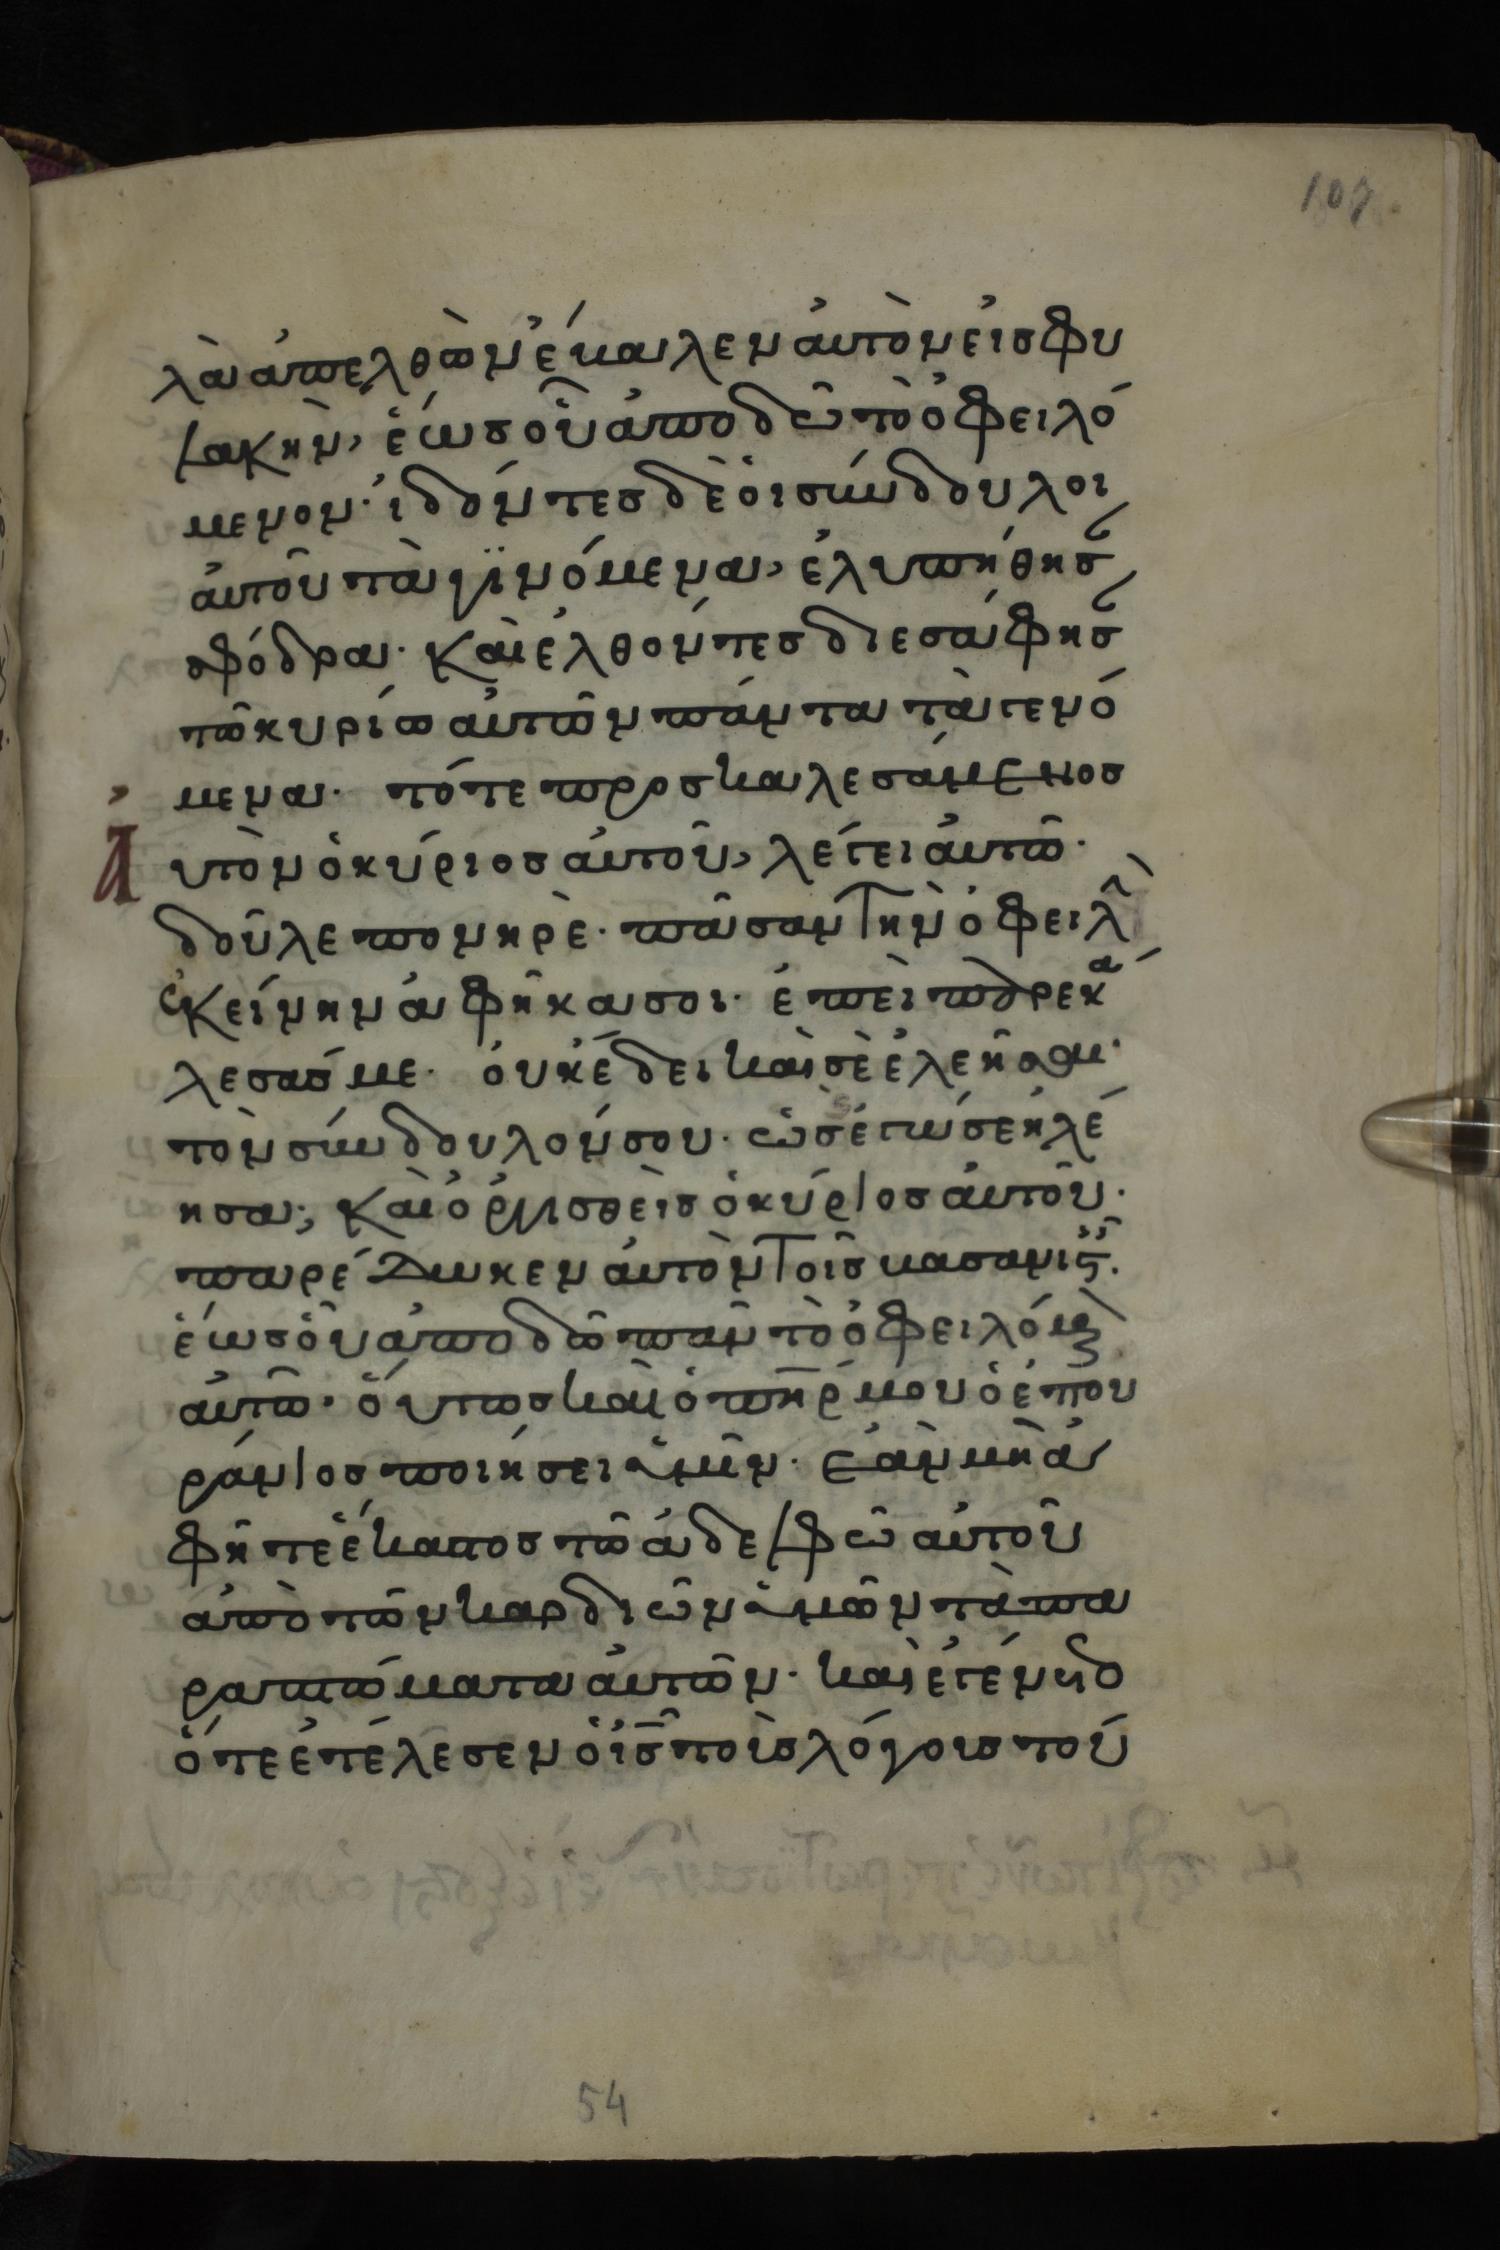 107
λὰ ἀπελθὼν ἔβαλεν ἀυτὸν εἰσ φυ
λακὴν, ἕωσ οὗ ἀποδῶ τὸ ὀφειλό
μενον· ἰδόντεσ δὲ ὁι σύνδουλοι
ἀυτοῦ τὰ γϊνόμενα, ἐλυπήθησ
σφόδρα· Καὶ ἐλθόντεσ διεσάφησ
τῶ κυρίω ἀυτῶν πάντα τὰ γενό
μενα· τότε προσκαλεσάμενοσ
Ἀυτὸν ὁ κύριοσ ἀυτοῦ, λέγει ἀυτῶ·
δοῦλε πονηρὲ· πᾶσαν τὴν ὀφειλ
ἐκείνην ἀφῆκα σοι· ἐπεὶ παρεκά
λεσάσ με· ὀυκ ἔδει καὶ σὲ ἐλεῆσαι
τὸν σύνδουλόν σου· ὡσ ἐγώ σε ἠλέ
ησα; Καὶ ὀργισθεὶσ ὁ κύριοσ ἀυτοῦ·
παρέδωκεν ἀυτὸν τοῖσ βασανισ.
ἕωσ ὁῦ ἀποδῶ πᾶν τὸ ὀφειλόμε
ἀυτῶ· ὅυτωσ καὶ ὁ πηρ μου ὁ ἐπου
ράνιοσ ποιήσει ὑμῖν· ἐὰν μὴ ἀ
φῆτε ἕκαστοσ τῶ ἀδελφῶ ἀυτοῦ
ἀπὸ τῶν καρδιῶν ὑμῶν τὰ πα
ραπτώματα ἀυτῶν· καὶ ἐγένετο
ὅτε ἐτέλεσεν ὁ ἰσ τοὺσ λόγουσ τού
54